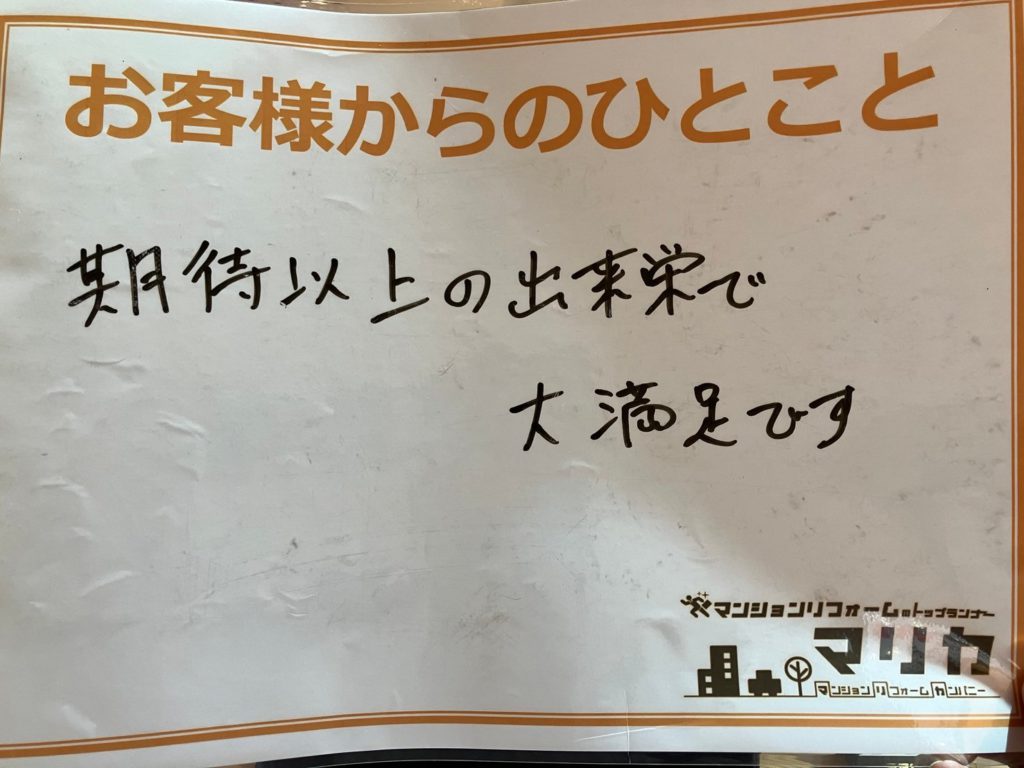 お客様からのひとこと
期待以上の出来栄で
大満足です
マンションリフォームのトップランナー
マリカ
マンションリフォームカンパニー